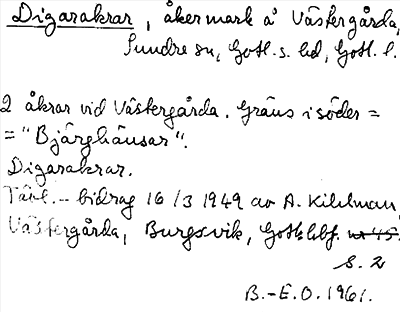 Digarakrar, åkermark å Västergårda,
Sundre sn, Gotl. s. hd, Gotl. l.
2 åkrar vid Västergårda. Gräns i söder =
= "Bjärghäusar".
Digarakrar.
Tävl.-bidrag 16/3 1949 av A. Kihlman,
Västergårda, Burgsvik, Gotl. hbf. nr 45.
S. 2
B.-E.O. 1961.